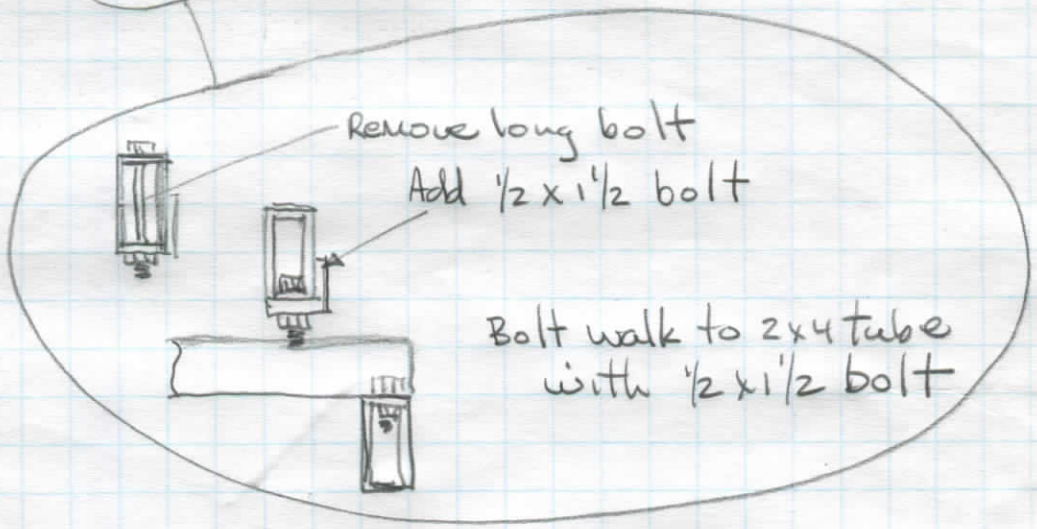 Remove long bolt
Add 1/2 x 1 1/2 bolt
Bolt walk to 2x4 tube
with 1/2 x 1 1/2 bolt